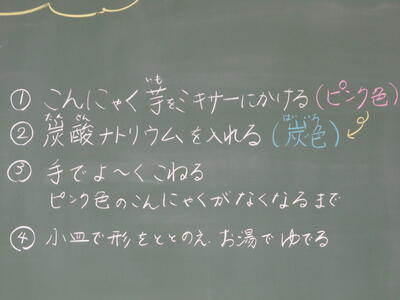 ① こんにゃく芋をミキサーにかける(ピンク色)
② 炭酸ナトリウムを入れる(灰色)
③ 手でよ〜くこねる
ピンク色のこんにゃくがなくなるまで
④ 小皿で形をととのえ、お湯でゆでる